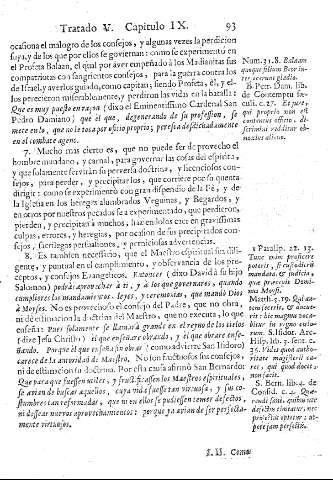 Tratado V. Capitulo IX. 93
ocasiona el malogro de los consejos, y algunas vezes la perdicion
suya, y de los que por ellos se goviernan: como se experimentò en
el Profeta Balaan, el qual por aver empeñado à los Madianitas sus
compatriotas con sangrientos consejos, para la guerra contra los
de Israel, y averlos guiado, como capitan; siendo Profeta, èl, y e-
llos perecieron miserablemente, y perdieron las vidas en la batalla:
Que es muy puesto en razon (dixo el Eminentissimo Cardenal San
Pedro Damiano) que el que, degenerando de su profession, se
mete en lo, que no le toca por oficio proprio, perezca desdichadamente
en el combate ageno.
7. Mucho mas cierto es, que no puede ser de provecho el
hombre mundano, y carnal, para governar las cosas del espiritu,
y que solamente servirán su perversa doctrina, y licenciosos con-
sejos, para perder, y precipitar los, que corriere por su quenta
dirigir: como se experimentò con gran dispendio de la Fè, y de
la Iglesia en los hereges alumbrados Veguinas, y Begardos, y
en otros por nuestros pecados se a experimentado, que perdieron,
pierden, y precipitan à muchos, haziendolos caer en gravissimas
culpas, errores, y heregias, por ocasion de sus precipitados con-
sejos, sacrilegas persuasiones, y perniciosas advertencias.
8. Es tambien necessario, que el Maestro espiritual sea dili-
gente, y puntual en el cumplimiento, y observancia de los pre-
ceptos, y consejos Evangelicos. Entonces (dixo David à su hijo
Salomon) podràs aprovechar à ti, y à los que governares, quando
cumplieres los mandamientos, leyes, y ceremonias, que mandò Dios
à Moyses. No es provechoso el consejo del Padre, que no obra,
ni de estimacion la doctrina del Maestro, que no executa, lo que
enseña: Pues solamente se llamarà grande en el reyno de los cielos
(dize Jesu Christo) el que enseñare obrando, y el que obrare ense-
ñando. Porque el que enseña sin obrar (como advierte San Isidoro)
carece de la autoridad de Maestro. No son fructuosos sus consejos,
ni de estimacion su doctrina. Por esta causa afirmò San Bernardo:
Que para que fuessen utiles, y fructificassen los Maestros espirituales,
se avian de buscar aquellos, cuya vida fuesse tan virtuosa, y sus co-
stumbres tan reformadas, que ni en ellos se pudiessen temer defectos,
ni dessear nuevos aprovechamientos: porque ya avian de ser perfecta-
mente virtuosos.
Num. 31. 8. Balaam
quoque filium Beor in-
terfecerunt gladio.
B. Petr. Dam. lib.
de Contemptu sæ-
culi. c. 27. Et pere,
qui proprio non est
contentus officio, di-
scrimina redditur ob-
noxius alieno.
1 Paralip. 22. 13.
Tunc enim proficere
poteris, si custodieris
mandata, & judicia,
quæ præcepit Domi-
nus Moysi.
Matth. 5. 19. Qui au-
tem fecerit, & docue-
rit: hic magnus voca-
bitur in regno cælor
um. S. Isidor. Arc.
Hisp. lib. 3. sent. c.
35. Vides quod autho-
ritate magisterii ca-
ret, qui quod docet,
non facit.
S. Bern. lib. 4. de
Consid. c. 4. Quæ-
rendi sunt, quibus nec
defectus timeatur, nec
profectus optetur; ut-
pote jam perfecti.
Como